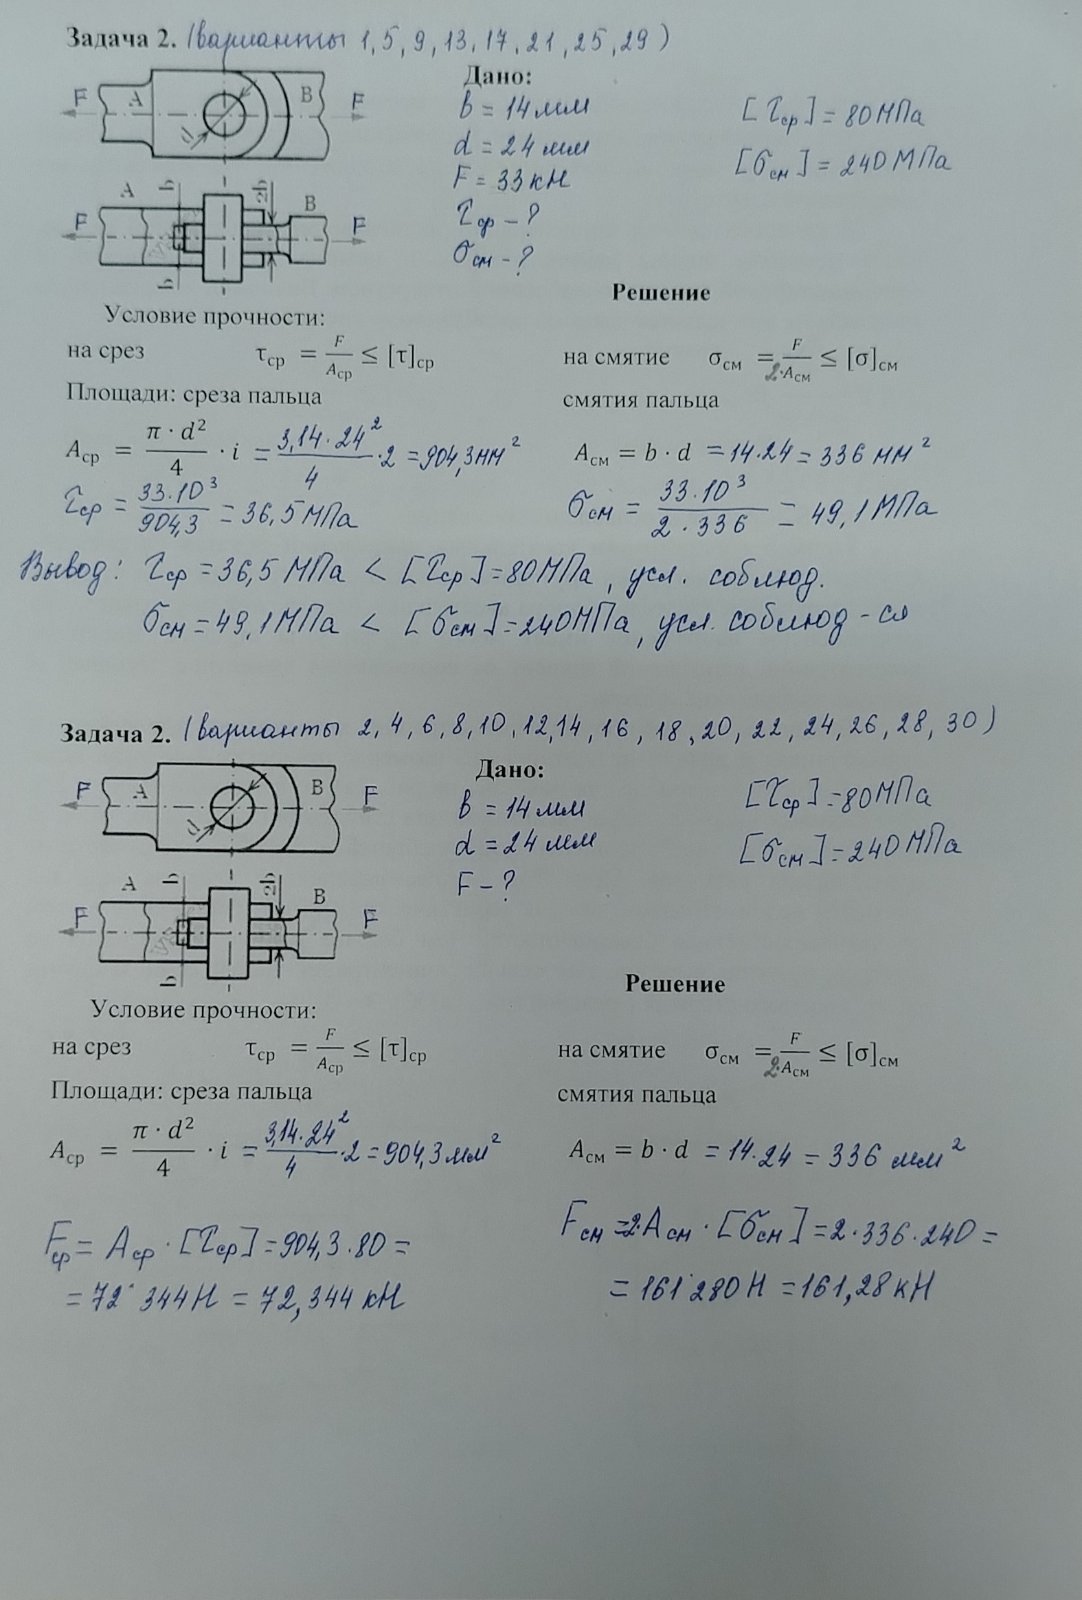 Задача 2. (варианты 1, 5, 9, 13, 17, 21, 25, 29)
F A B F
d
Дано:
b = 14 мм
d = 24 мм
F = 33 кН
τср – ?
σсм – ?
[τср] = 80 МПа
[σсм] = 240 МПа
A b 2b B
F F
b
Решение
Условие прочности:
на срез τср = F/Aср ≤ [τ]ср
на смятие σсм = F/2·Aсм ≤ [σ]см
Площади: среза пальца
смятия пальца
Aср = π · d²/4 · i = 3,14·24²/4 ·2 = 904,3 мм²
Aсм = b · d = 14·24 = 336 мм²
τср = 33·10³/904,3 = 36,5 МПа
σсм = 33·10³/2·336 = 49,1 МПа
Вывод: τср = 36,5 МПа < [τср] = 80 МПа, усл. соблюд.
σсм = 49,1 МПа < [σсм] = 240 МПа, усл. соблюд-ся
Задача 2. (варианты 2, 4, 6, 8, 10, 12, 14, 16, 18, 20, 22, 24, 26, 28, 30)
F A B F
d
Дано:
b = 14 мм
d = 24 мм
F – ?
[τср] = 80 МПа
[σсм] = 240 МПа
A b 2b B
F F
b
Решение
Условие прочности:
на срез τср = F/Aср ≤ [τ]ср
на смятие σсм = F/2·Aсм ≤ [σ]см
Площади: среза пальца
смятия пальца
Aср = π · d²/4 · i = 3,14·24²/4 ·2 = 904,3 мм²
Aсм = b · d = 14·24 = 336 мм²
Fср = Aср · [τср] = 904,3·80 =
= 72 344 Н = 72,344 кН
Fсм = 2·Aсм · [σсм] = 2·336·240 =
= 161 280 Н = 161,28 кН